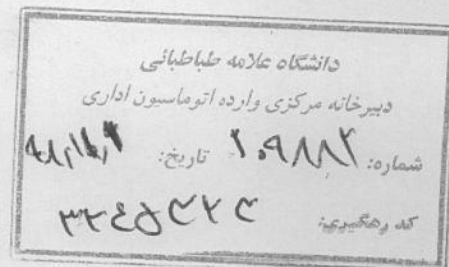 دانشگاه علامه طباطبائی
دبیرخانه مرکزی وارده اتوماسیون اداری
شماره: ۲۰۹۸۸۲ تاریخ:
کد رهگیری: